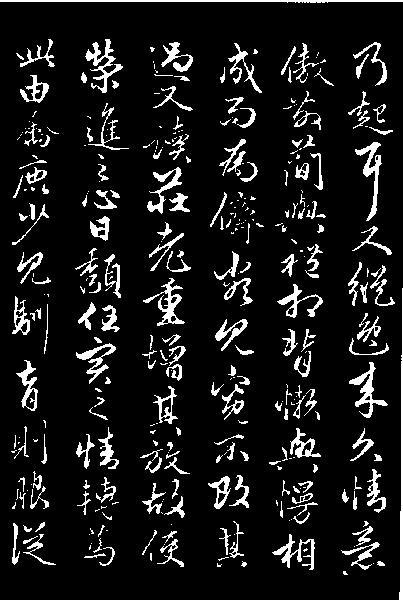 乃起耳又縱逸来久情意
傲散簡與禮相背懶與慢相
成而為儕類見寬不攻其
過又讀莊老重增其放故使
榮進之心日頹任實之情轉篤
此由禽鹿少見馴育則服從